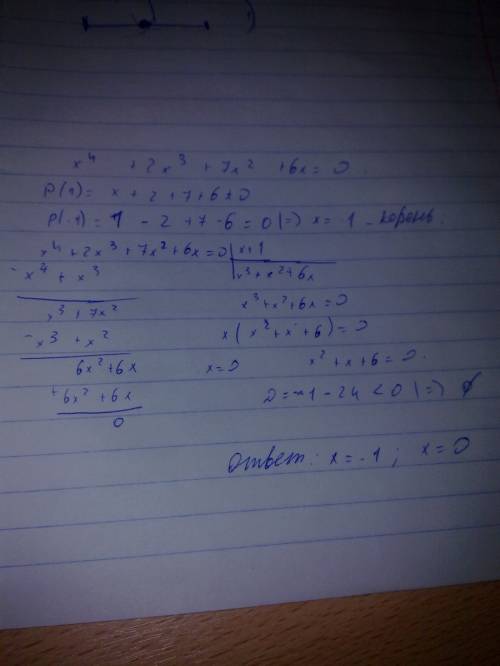 x⁴ + 2x³ + 7x² + 6x = 0.
P(1) = x + 2 + 7 + 6 ≠ 0
P(-1) = 1 - 2 + 7 - 6 = 0 |=> x = 1 - корень.
x⁴ + 2x³ + 7x² + 6x = 0 | x+1
- x⁴ + x³ | x³ + x² + 6x
x³ + 7x² x³ + x² + 6x = 0
- x³ + x² x(x² + x + 6) = 0
6x² + 6x x = 0 x² + x + 6 = 0.
6x² + 6x D = 1 - 24 < 0 |=> ∅
0
Ответ: x = -1; x = 0